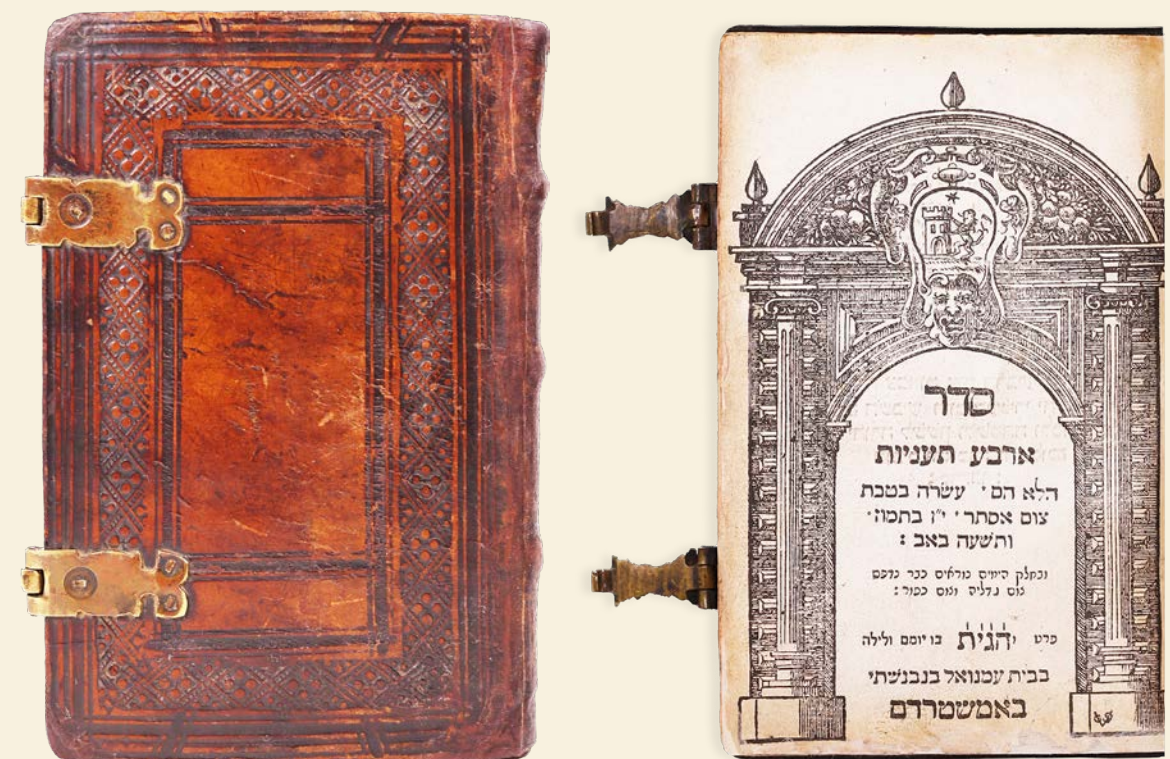 סדר
ארבע תעניות
הלא הם׳ עשרה בטבת
צום אסתר׳ י״ז בתמוז׳
ותשעה באב :
ובחלק הימים נוראים כבר נדפס
צום גדליה וצום כפור :
פרט והגית בו יומם ולילה
בבית עמנואל בנבנשתי
באמשטרדם